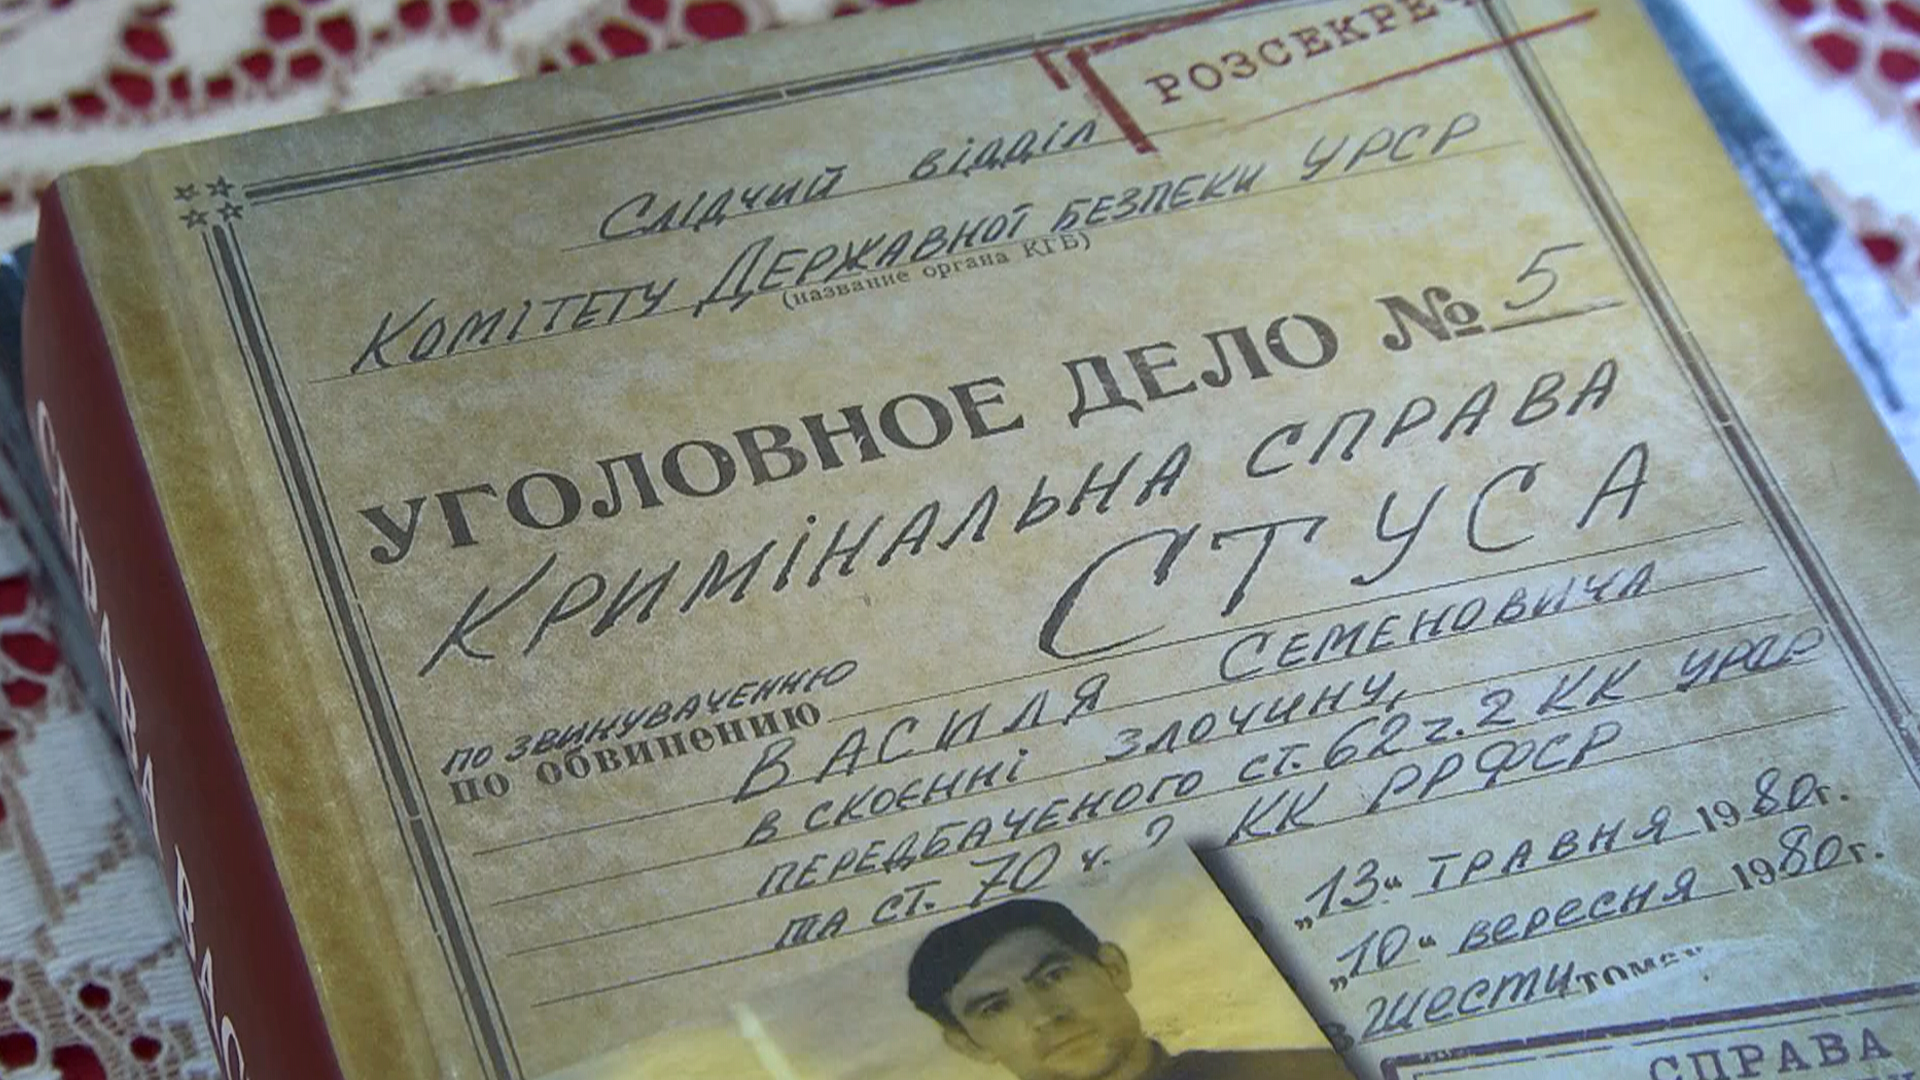 РОЗСЕКРЕЧ
Слідчий відділ
Комітету Державної безпеки УРСР
(название органа КГБ)
УГОЛОВНОЕ ДЕЛО № 5
Кримінальна справа
СТУСА
по звинуваченню
по обвинению
Василя Семеновича
в скоєнні злочину,
передбаченого ст. 62 ч. 2 КК УРСР
та ст. 70 ч. 2 КК РРФСР
„13“ травня 1980 г.
„10“ вересня 1980 г.
в шести томах
СПРАВА
СПРАВА ВАС